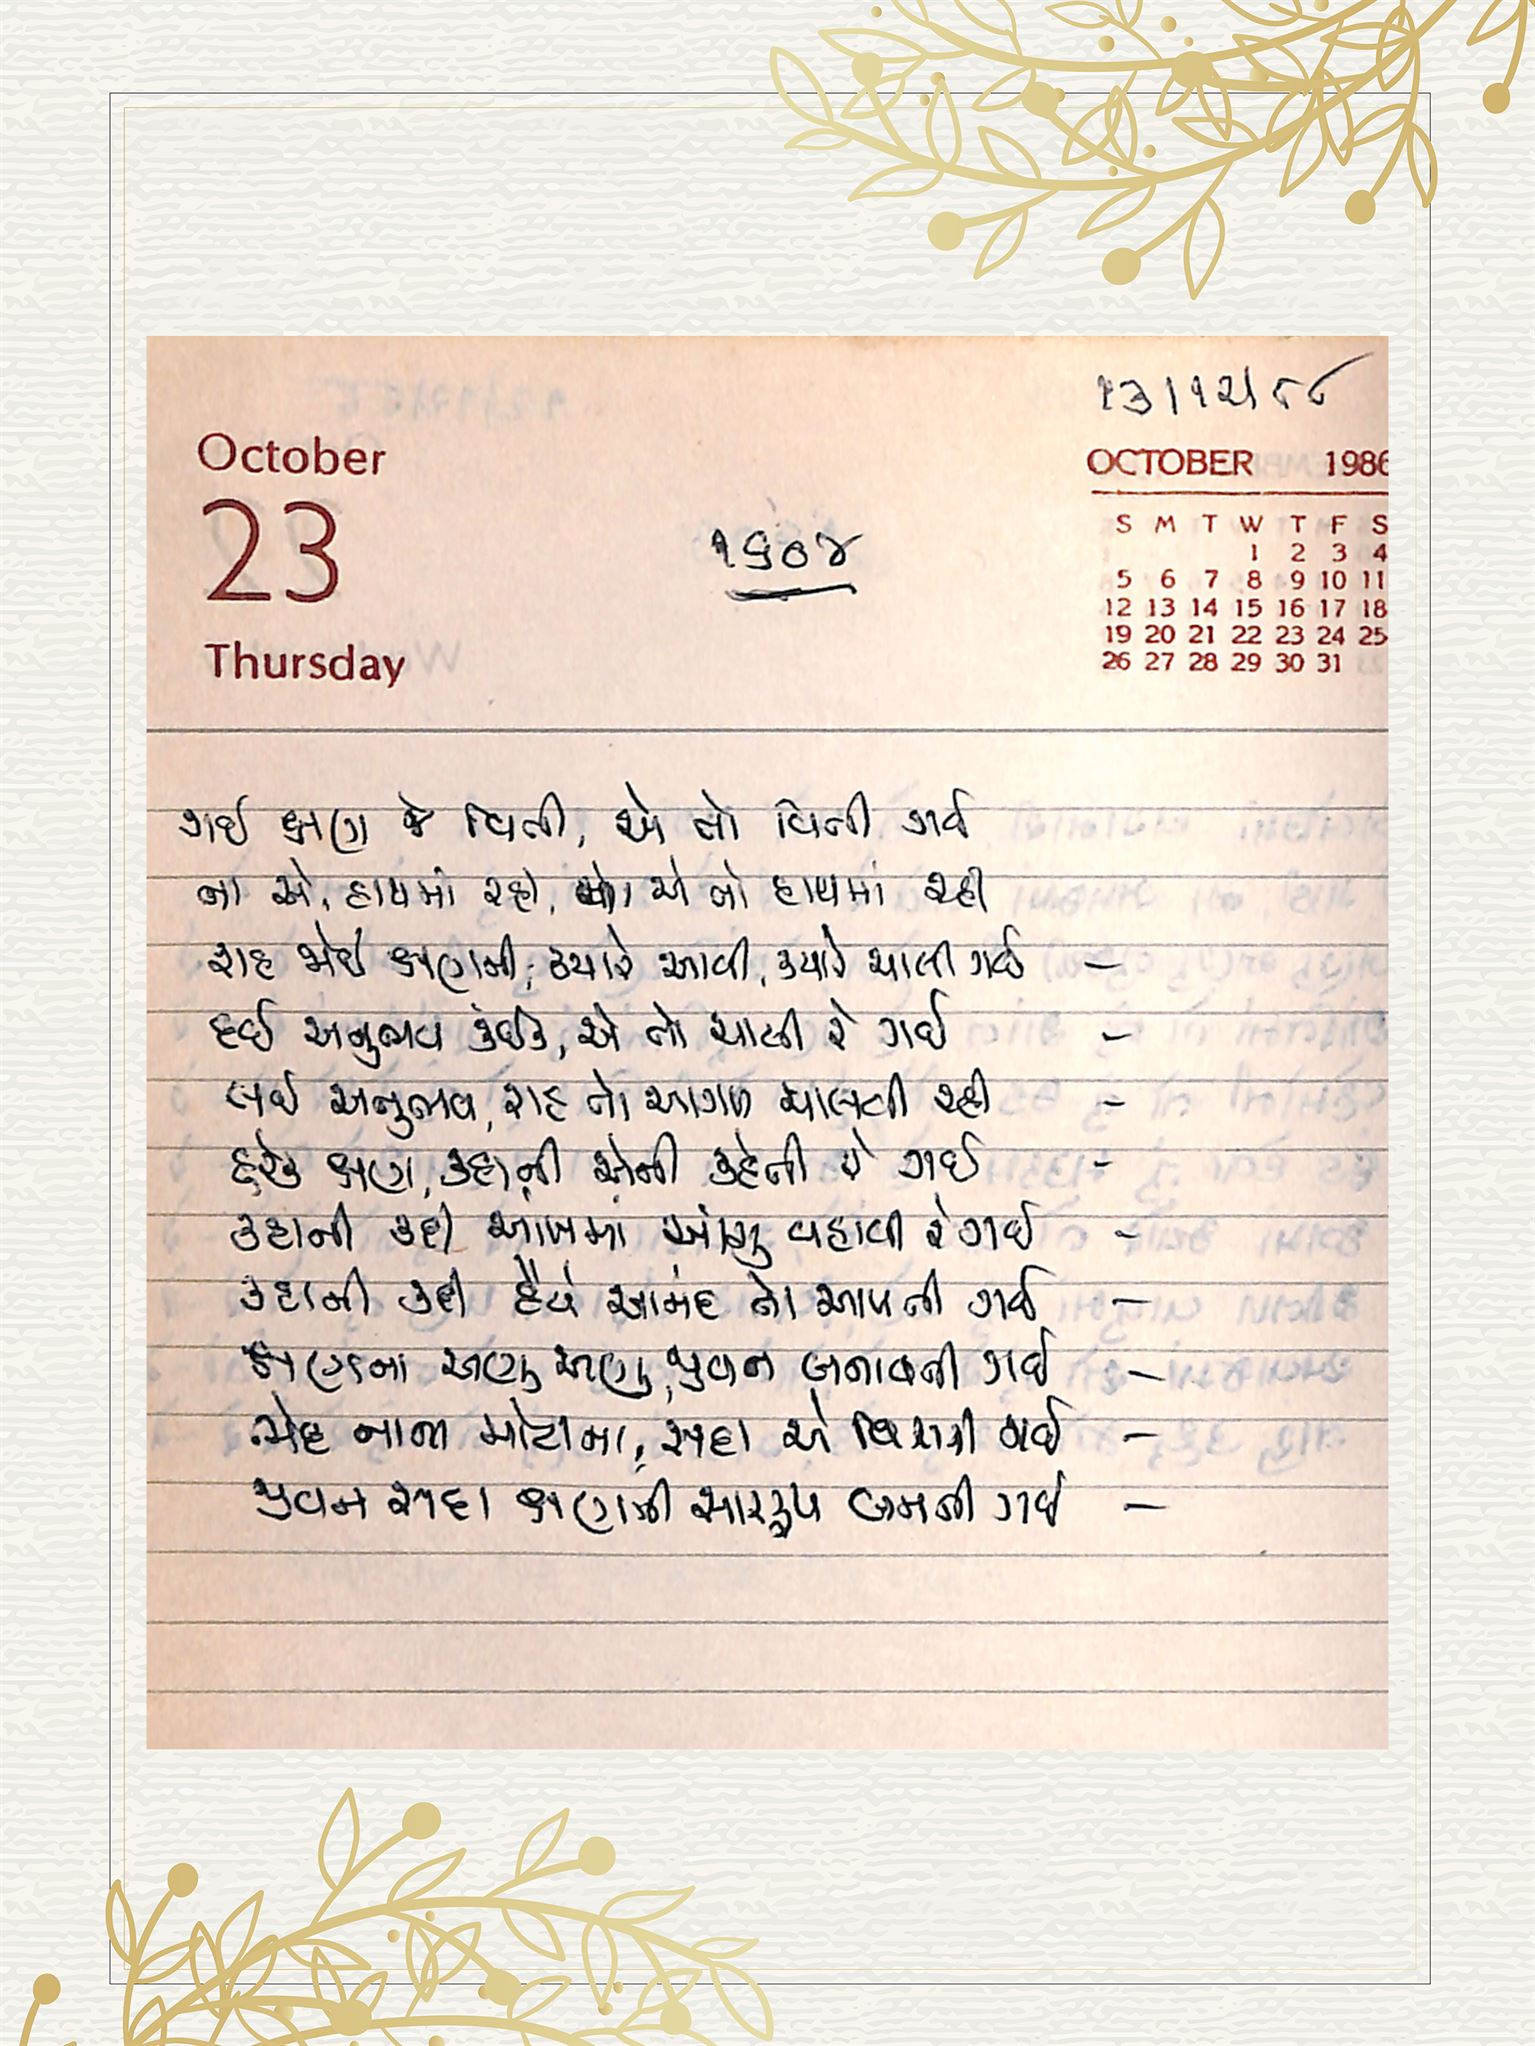 ૧૩|૧૨|૮૮
October
23
Thursday
૧૬૦૪
OCTOBER 1986
S M T W T F S
1 2 3 4
5 6 7 8 9 10 11
12 13 14 15 16 17 18
19 20 21 22 23 24 25
26 27 28 29 30 31
ગઈ ક્ષણ જે વિતી, એ તો વિતી ગઈ
ના એ, હાથમાં રહી, ના એ તો હાથમાં રહી
રાહ જોઈ ક્ષણની, ક્યારે આવી, ક્યારે ચાલી ગઈ –
દઈ અનુભવ કંઈક, એ તો ચાલી રે ગઈ –
લઈ અનુભવ, રાહ તો આગળ ચાલતી રહી –
દરેક ક્ષણ, કહાની એની કહેતી રે ગઈ –
કહાની કદી આંખમાં આંસુ વહાવી રે ગઈ –
કહાની કદી હૈયે આનંદ તો આપતી ગઈ –
ક્ષણના અણુ અણુ, જીવન બનાવતી ગઈ –
ભેદ નાના મોટાના, સદા એ વિસરી ગઈ –
જીવન સદા ક્ષણની સારરૂપ બનતી ગઈ –